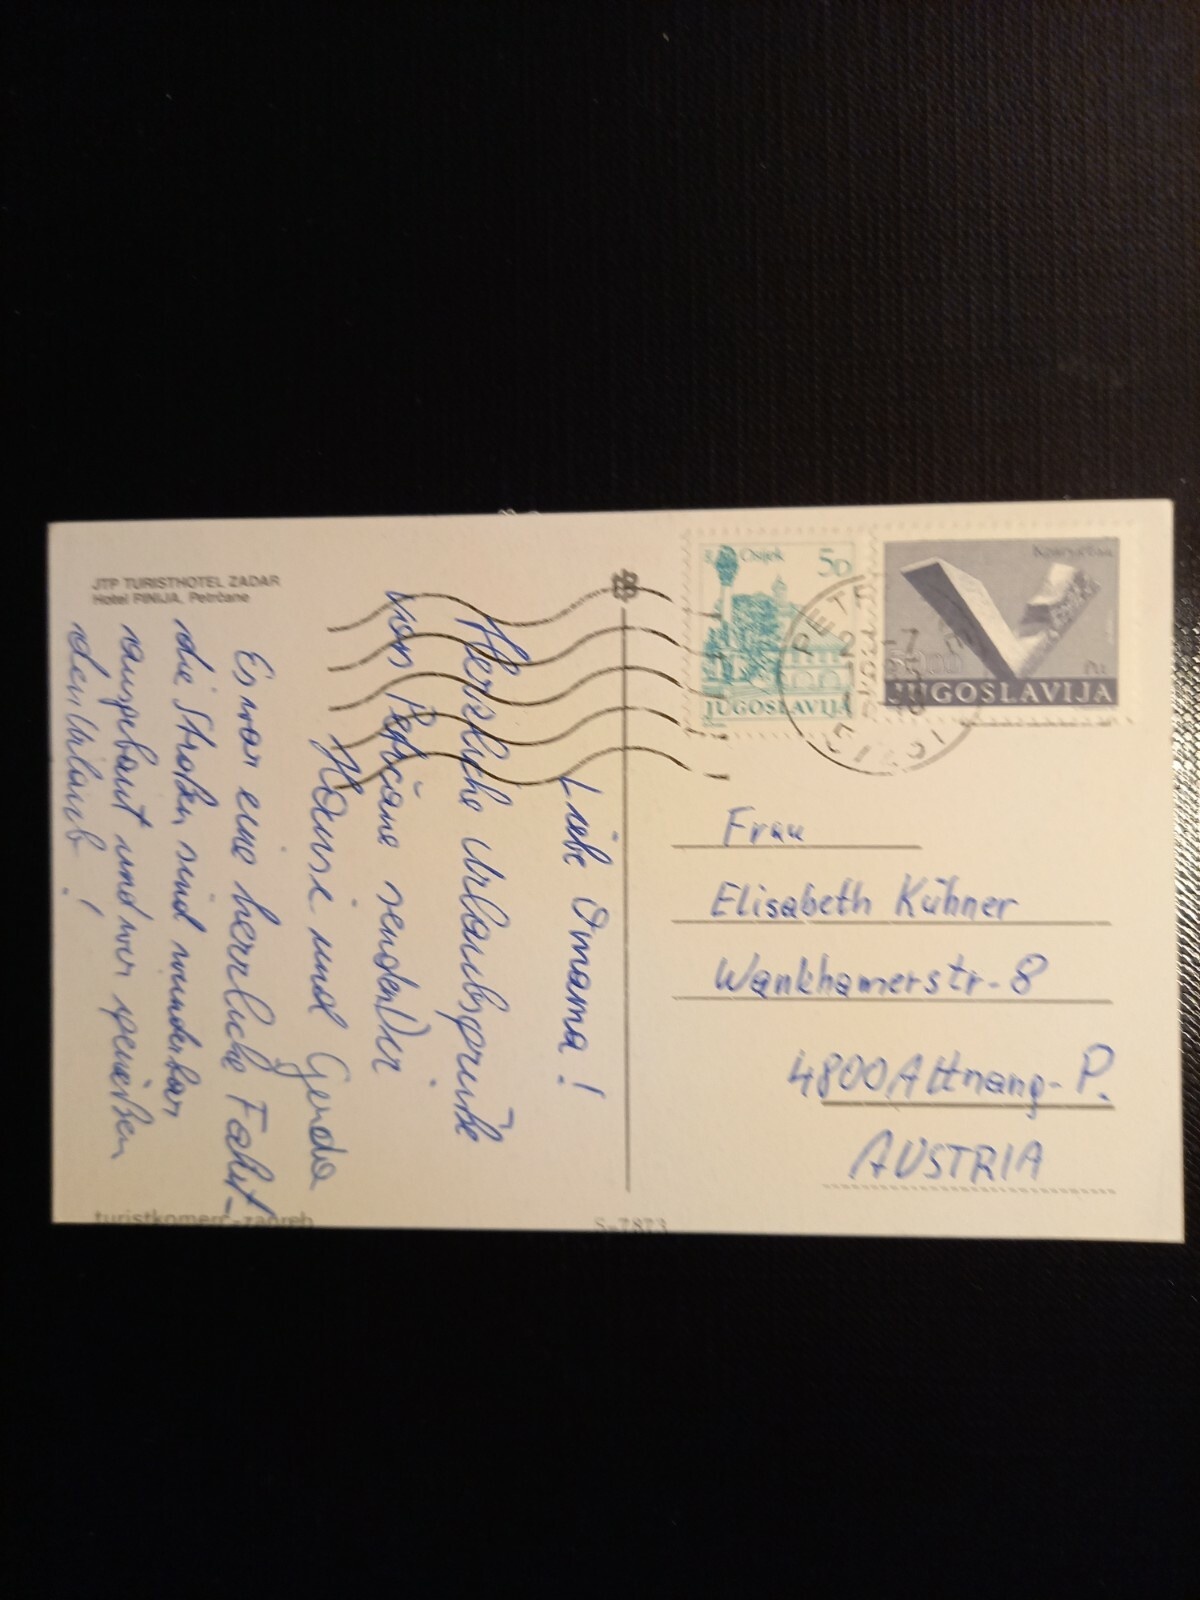 JTP TURISTHOTEL ZADAR
Hotel PINIJA, Petrčane
Liebe Omama!
Herzliche Urlaubsgrüße
von Petrčane senden Dir
Hansi und Gerda
Es war eine herrliche Fahrt-
die Straßen sind wunderbar
ausgebaut und wir genießen
den Urlaub!
turistkomerc-zagreb
S-7873
Osijek
50
JUGOSLAVIJA
JUGOSLAVIJA
Frau
Elisabeth Kühner
Wankhamerstr-8
4800 Attnang-P.
AUSTRIA